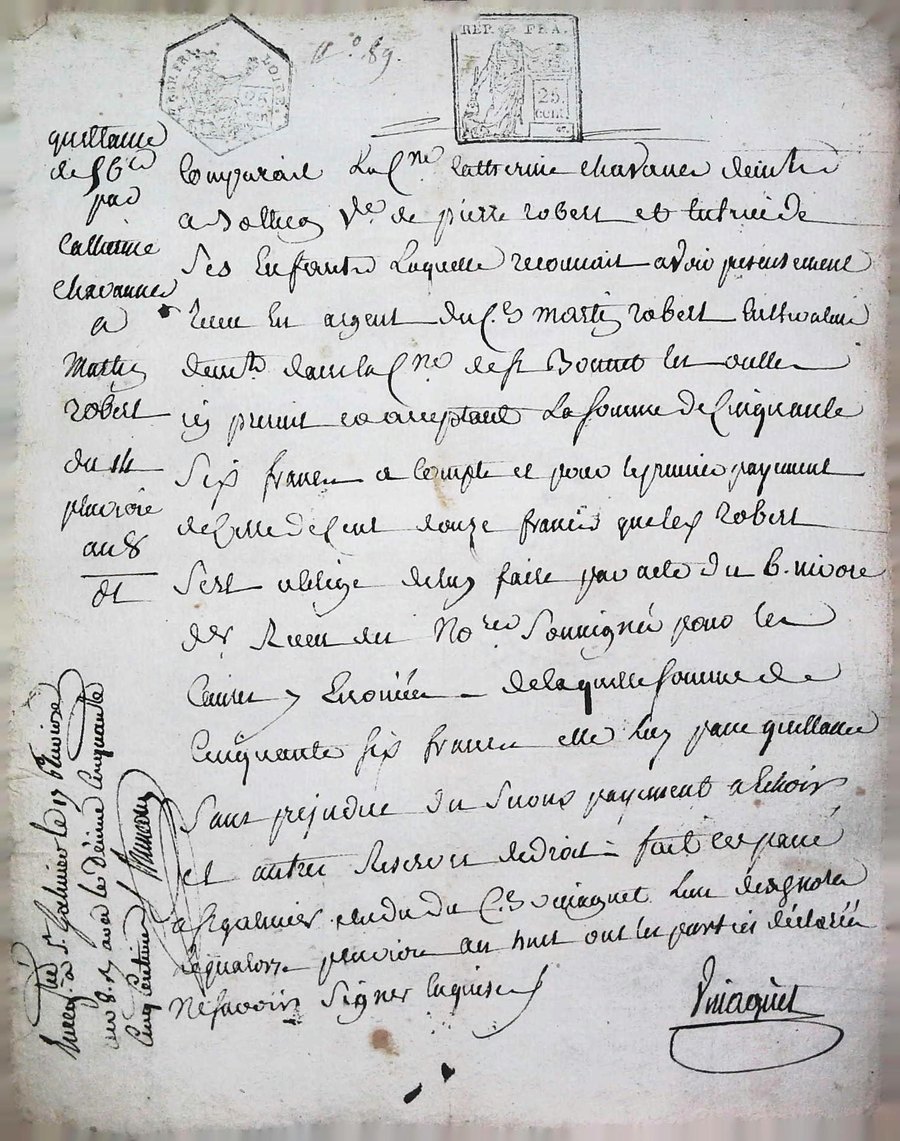 N.° 89.
REP. FRA. LOIRE.
25 CEN.
REP. FRA.
25. CENT.
quittance
de 56 l.
par
Catherine
Chavanne
a
Mathieu
robert
du 14
pluviose
an 8
Comparait La C.ne Catherine Chavanne demte
a V.ve de pierre robert et tutrice de
Ses Enfants Laquelle reconnait avoir presentement
Receu En argent du C.en robert Cultivateur
demt. dans la C.ne de St. Bonnet les oulles
icy present et acceptant La somme de Cinquante
Six francs a compte et pour le premier payement
de Celle de Cent douze francs que led. robert
S'est obligé de luy faire par acte du 6. nivose
der. Receu du No.re Soussigné pour les
Causes y Enoncées de laquelle somme de
Cinquante six francs elle luy passe quittance
Sans prejudice du Second payement a Echoir
et autres Reserves de droit fait et passé
a St galmier etude du C.en L'un des notes
le quatorze pluviose an huit ont les parties déclarées
Ne savoir Signer Enquises
né
Receu à St. Galmier le 17 Pluviose
an 8. avec le Décime Cinquante
Cinq Centimes